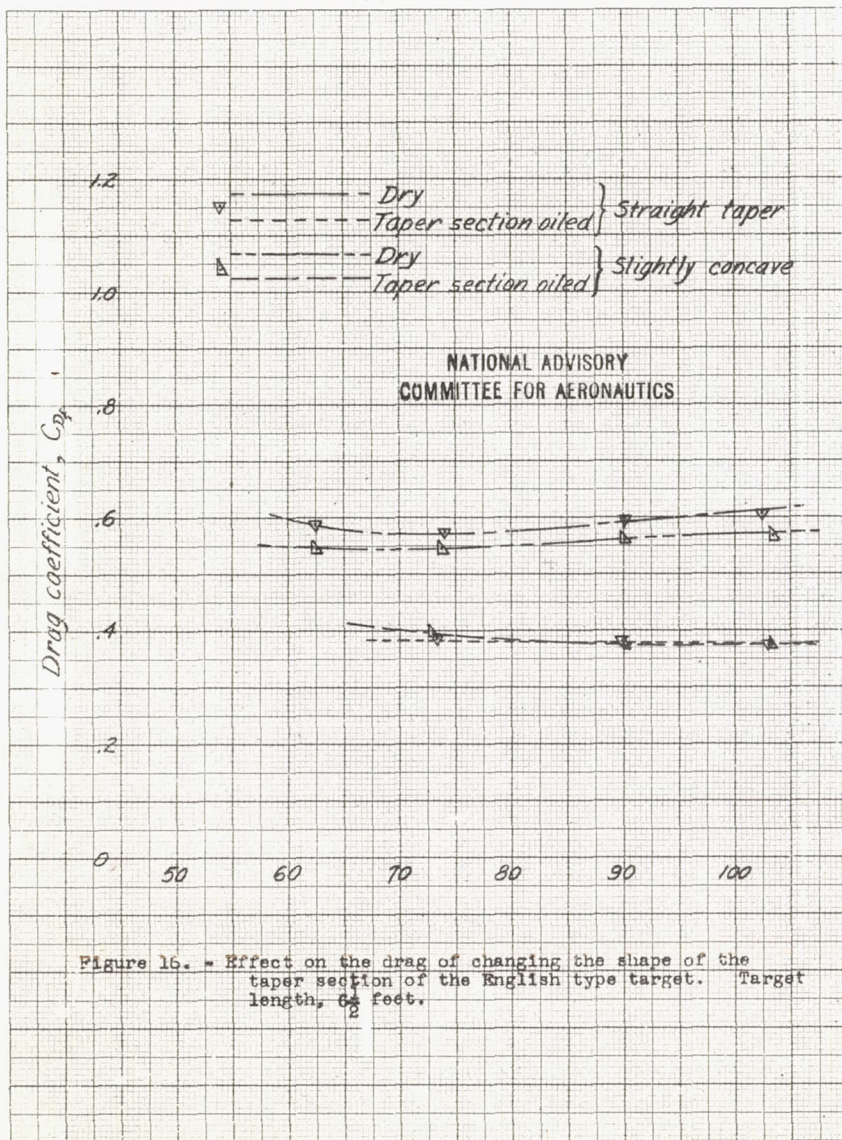 1.2
Dry
Taper section oiled } Straight taper
Dry
Taper section oiled } Slightly concave
1.0
NATIONAL ADVISORY
COMMITTEE FOR AERONAUTICS
.8
Drag coefficient, C_DF
.6
.4
.2
0
50 60 70 80 90 100
Figure 16. - Effect on the drag of changing the shape of the
taper section of the English type target. Target
length, 6½ feet.